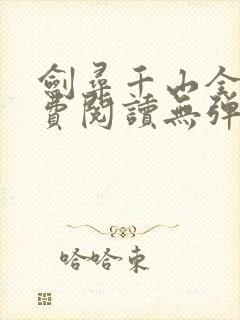 劍尋千山全
費閱讀無彈
哈哈東